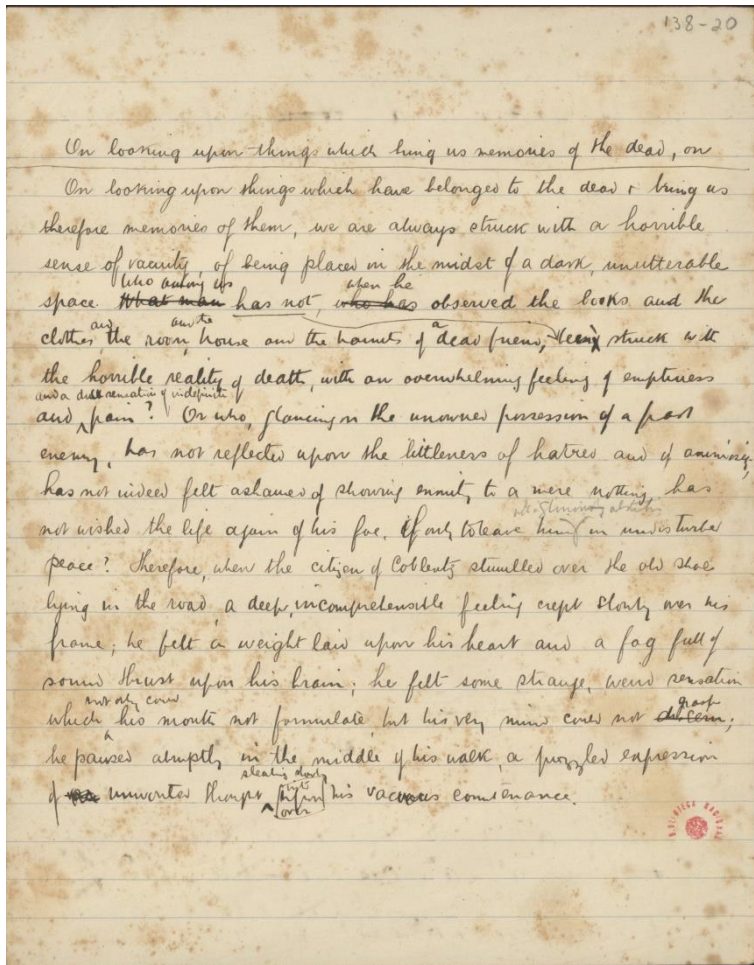 138-20
On looking upon things which bring us memories of the dead, on
On looking upon things which have belonged to the dead & bring us
therefore memories of them, we are always struck with a horrible
sense of vacuity, of being placed in the midst of a dark, unutterable
who among us when he
space. What man has not, who has observed the books and the
and and the a
clothes, the room, house and the haunts of dead friend, been struck with
the horrible reality of death, with an overwhelming feeling of emptiness
and a dull sensation of indefinite
and pain? Or who, glancing on the unowned possession of a past
enemy, has not reflected upon the littleness of hatred and of animosity,
has not indeed felt ashamed of showing enmity to a mere nothing, has
not wished the life again of his foe, if only to leave him in undisturbed
peace? Therefore, when the citizen of Coblentz stumbled over the old shoe
lying in the road, a deep, incomprehensible feeling crept slowly over his
frame; he felt a weight laid upon his heart and a fog full of
sound thrust upon his brain; he felt some strange, weird sensation
not only could grasp
which his mouth not formulate, but his very mind could not discern;
he paused abruptly in the middle of his walk, a puzzled expression
stealing slowly
of unwonted thought upon his vacuous countenance.
over
BIBLIOTECA NACIONAL